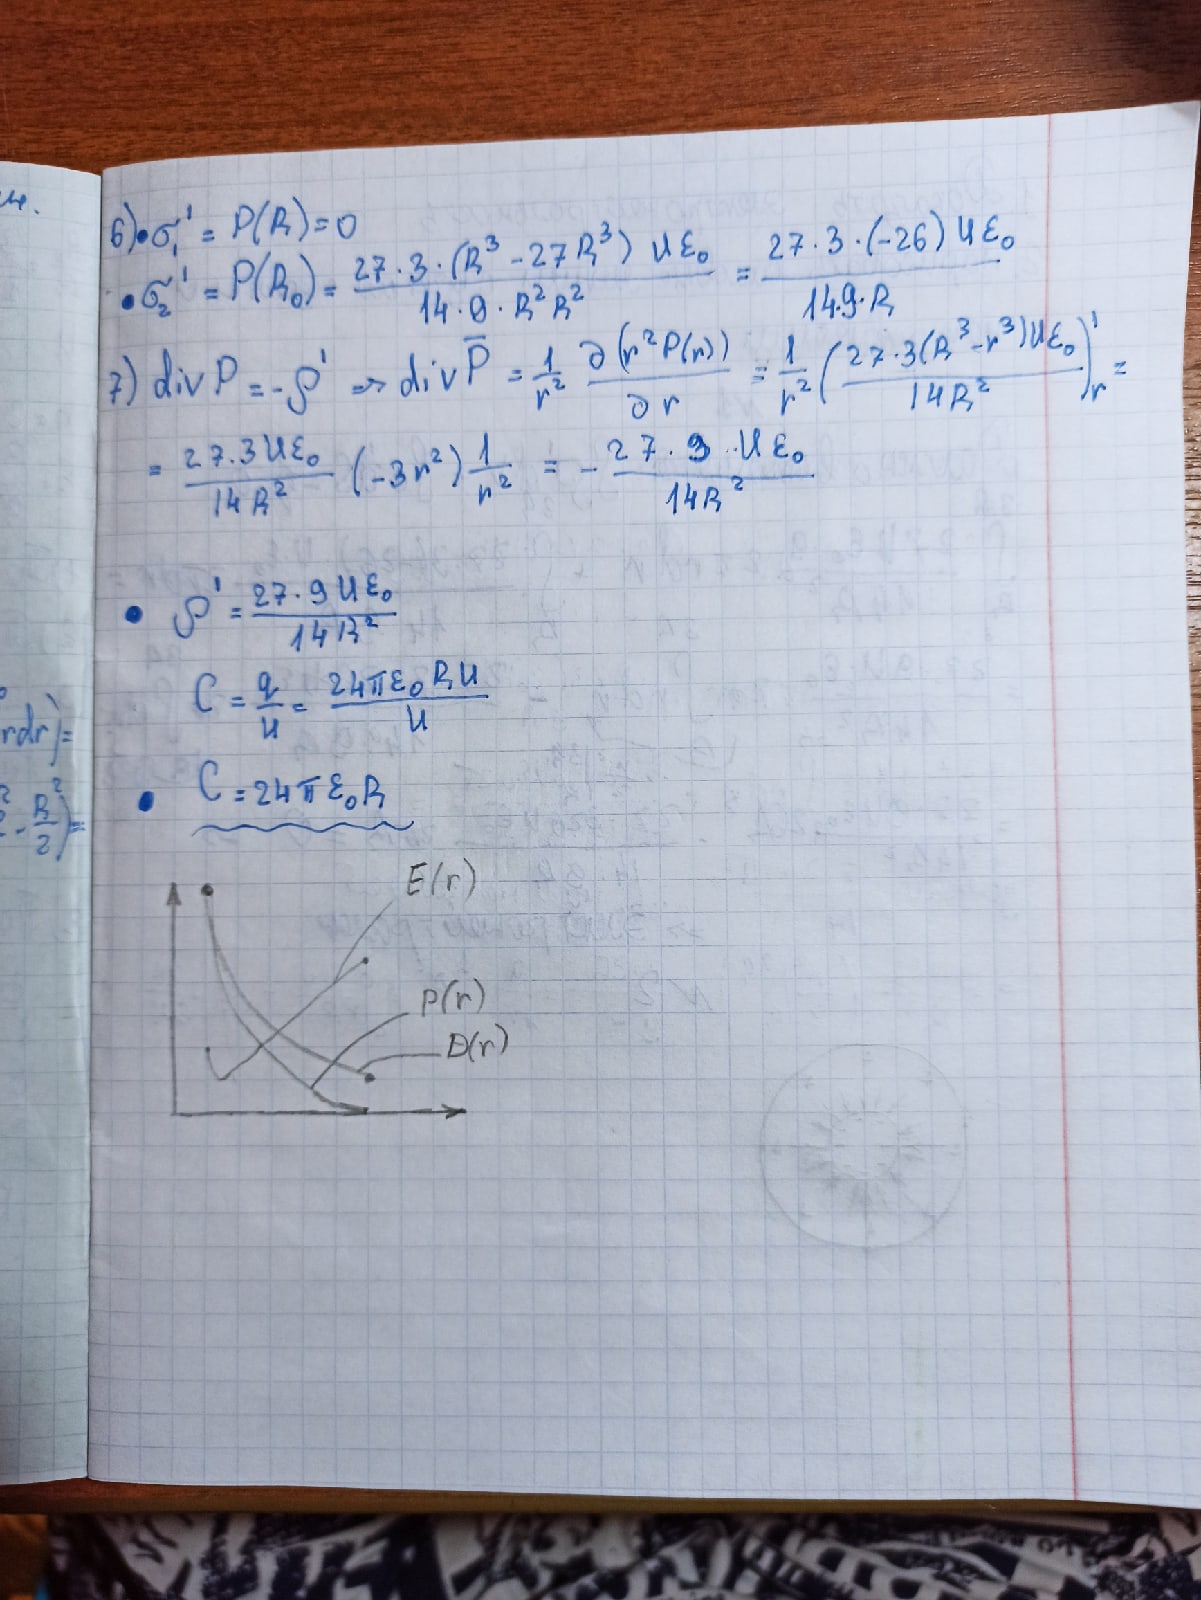 6) • σ₁' = P(R) = 0
• σ₂' = P(R₀) = 27·3·(R³ - 27R³) Uε₀ / 14·9·R²R² = 27·3·(-26) Uε₀ / 14·9·R
7) div P = -ρ' ⇒ div P̅ = 1/r² ∂(r²P(r))/∂r = 1/r² (27·3(R³-r³)Uε₀ / 14R²)'r =
= 27·3Uε₀ / 14R² (-3r²) 1/r² = - 27·9·Uε₀ / 14R²
• ρ' = 27·9Uε₀ / 14R²
C = q/U = 24πε₀RU / U
• C = 24πε₀R
E(r)
P(r)
D(r)
rdr) =
- R²/2) =